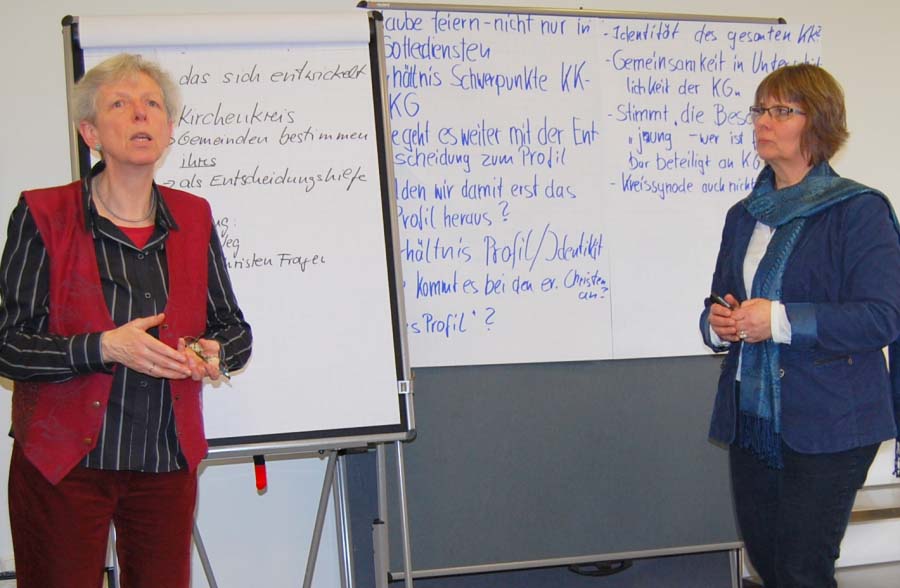 das sich entwickelt
Kirchenkreis
Gemeinden bestimmen
ihres
→ als Entscheidungshilfe
Weg
Christen Fragen
aube feiern - nicht nur in
Gottediensten
hältnis Schwerpunkte KK-
KG
geht es weiter mit der Ent
scheidung zum Profil
den wir damit erst das
Profil heraus?
hältnis Profil/Identität
kommt es bei den ev. Christen
an?
s Profil"?
- Identität des gesamten KK?
- Gemeinsamkeit in Unterschied
lichkeit der KG.
- Stimmt die Besc
- wer ist
beteiligt an KG
- Kreissynode auch nicht